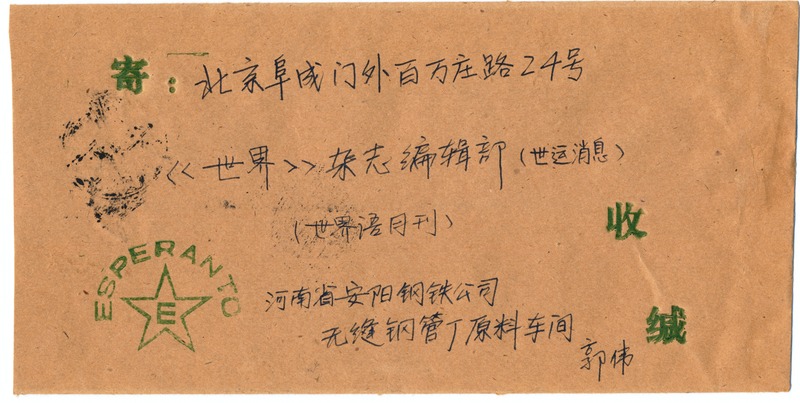 寄：北京阜成门外百万庄路24号
《世界》杂志编辑部（世运消息）
（世界语月刊）
收
ESPERANTO
E
河南省安阳钢铁公司
无缝钢管厂原料车间
郭伟
缄